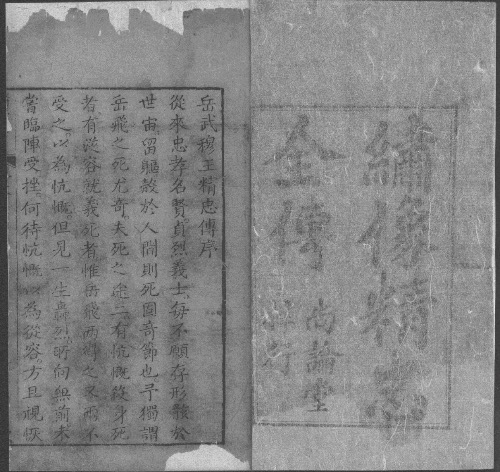 繡像精忠
全傳
尚論堂
梓行
岳武穆王精忠傳序
從來忠孝名賢貞烈義士每不願存形骸於
世宙留軀殼於人間則死固奇節也予獨謂
岳飛之死尤奇夫死之途二有忼慨殺身死
者有從容就義死者惟岳飛兩得之又兩不
受之以為忼慨但見一生轟烈所向無前未
嘗臨陣受挫何待忼慨以為從容方且規恢